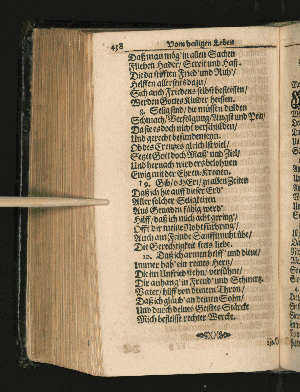 458 Vom heiligen Leben
Daß man mög' in allen Sachen
Fliehen Hader/ Streit und Haß.
Die da stifften Fried' und Ruh/
Helffen allerseits dazu/
Sich auch Friedens selbst befleissen/
Werden Gottes Kinder heissen.
8. Selig sind/ die müssen dulden
Schmach/ Verfolgung/ Angst und Pein/
Da sie es doch nicht verschulden/
Und gerecht befunden seyn.
Ob des Creutzes gleich ist viel/
Setzt Gott doch Maaß und Ziel/
Und hernach wird ers belohnen
Ewig mit der Ehren-Kronen.
9. Gib/ o HErr/ zu allen Zeiten
Daß ich hie auf dieser Erd'
Aller solcher Seligkeiten
Aus Genaden fähig werd'.
Hilff/ daß ich mich acht gering/
Offt dir meine Noht fürbring/
Auch am Feinde Sanfftmuht übe/
Die Gerechtigkeit stets liebe.
10. Daß ich Armen helf' und diene/
Immer hab' ein reines Hertz/
Die im Unfried stehn/ versühne/
Dir anhang' in Freud' und Schmertz.
Vater/ hilff von deinem Thron/
Daß ich gläub' an deinen Sohn/
Und durch deines Geistes Stärcke
Mich befleisse rechter Wercke.